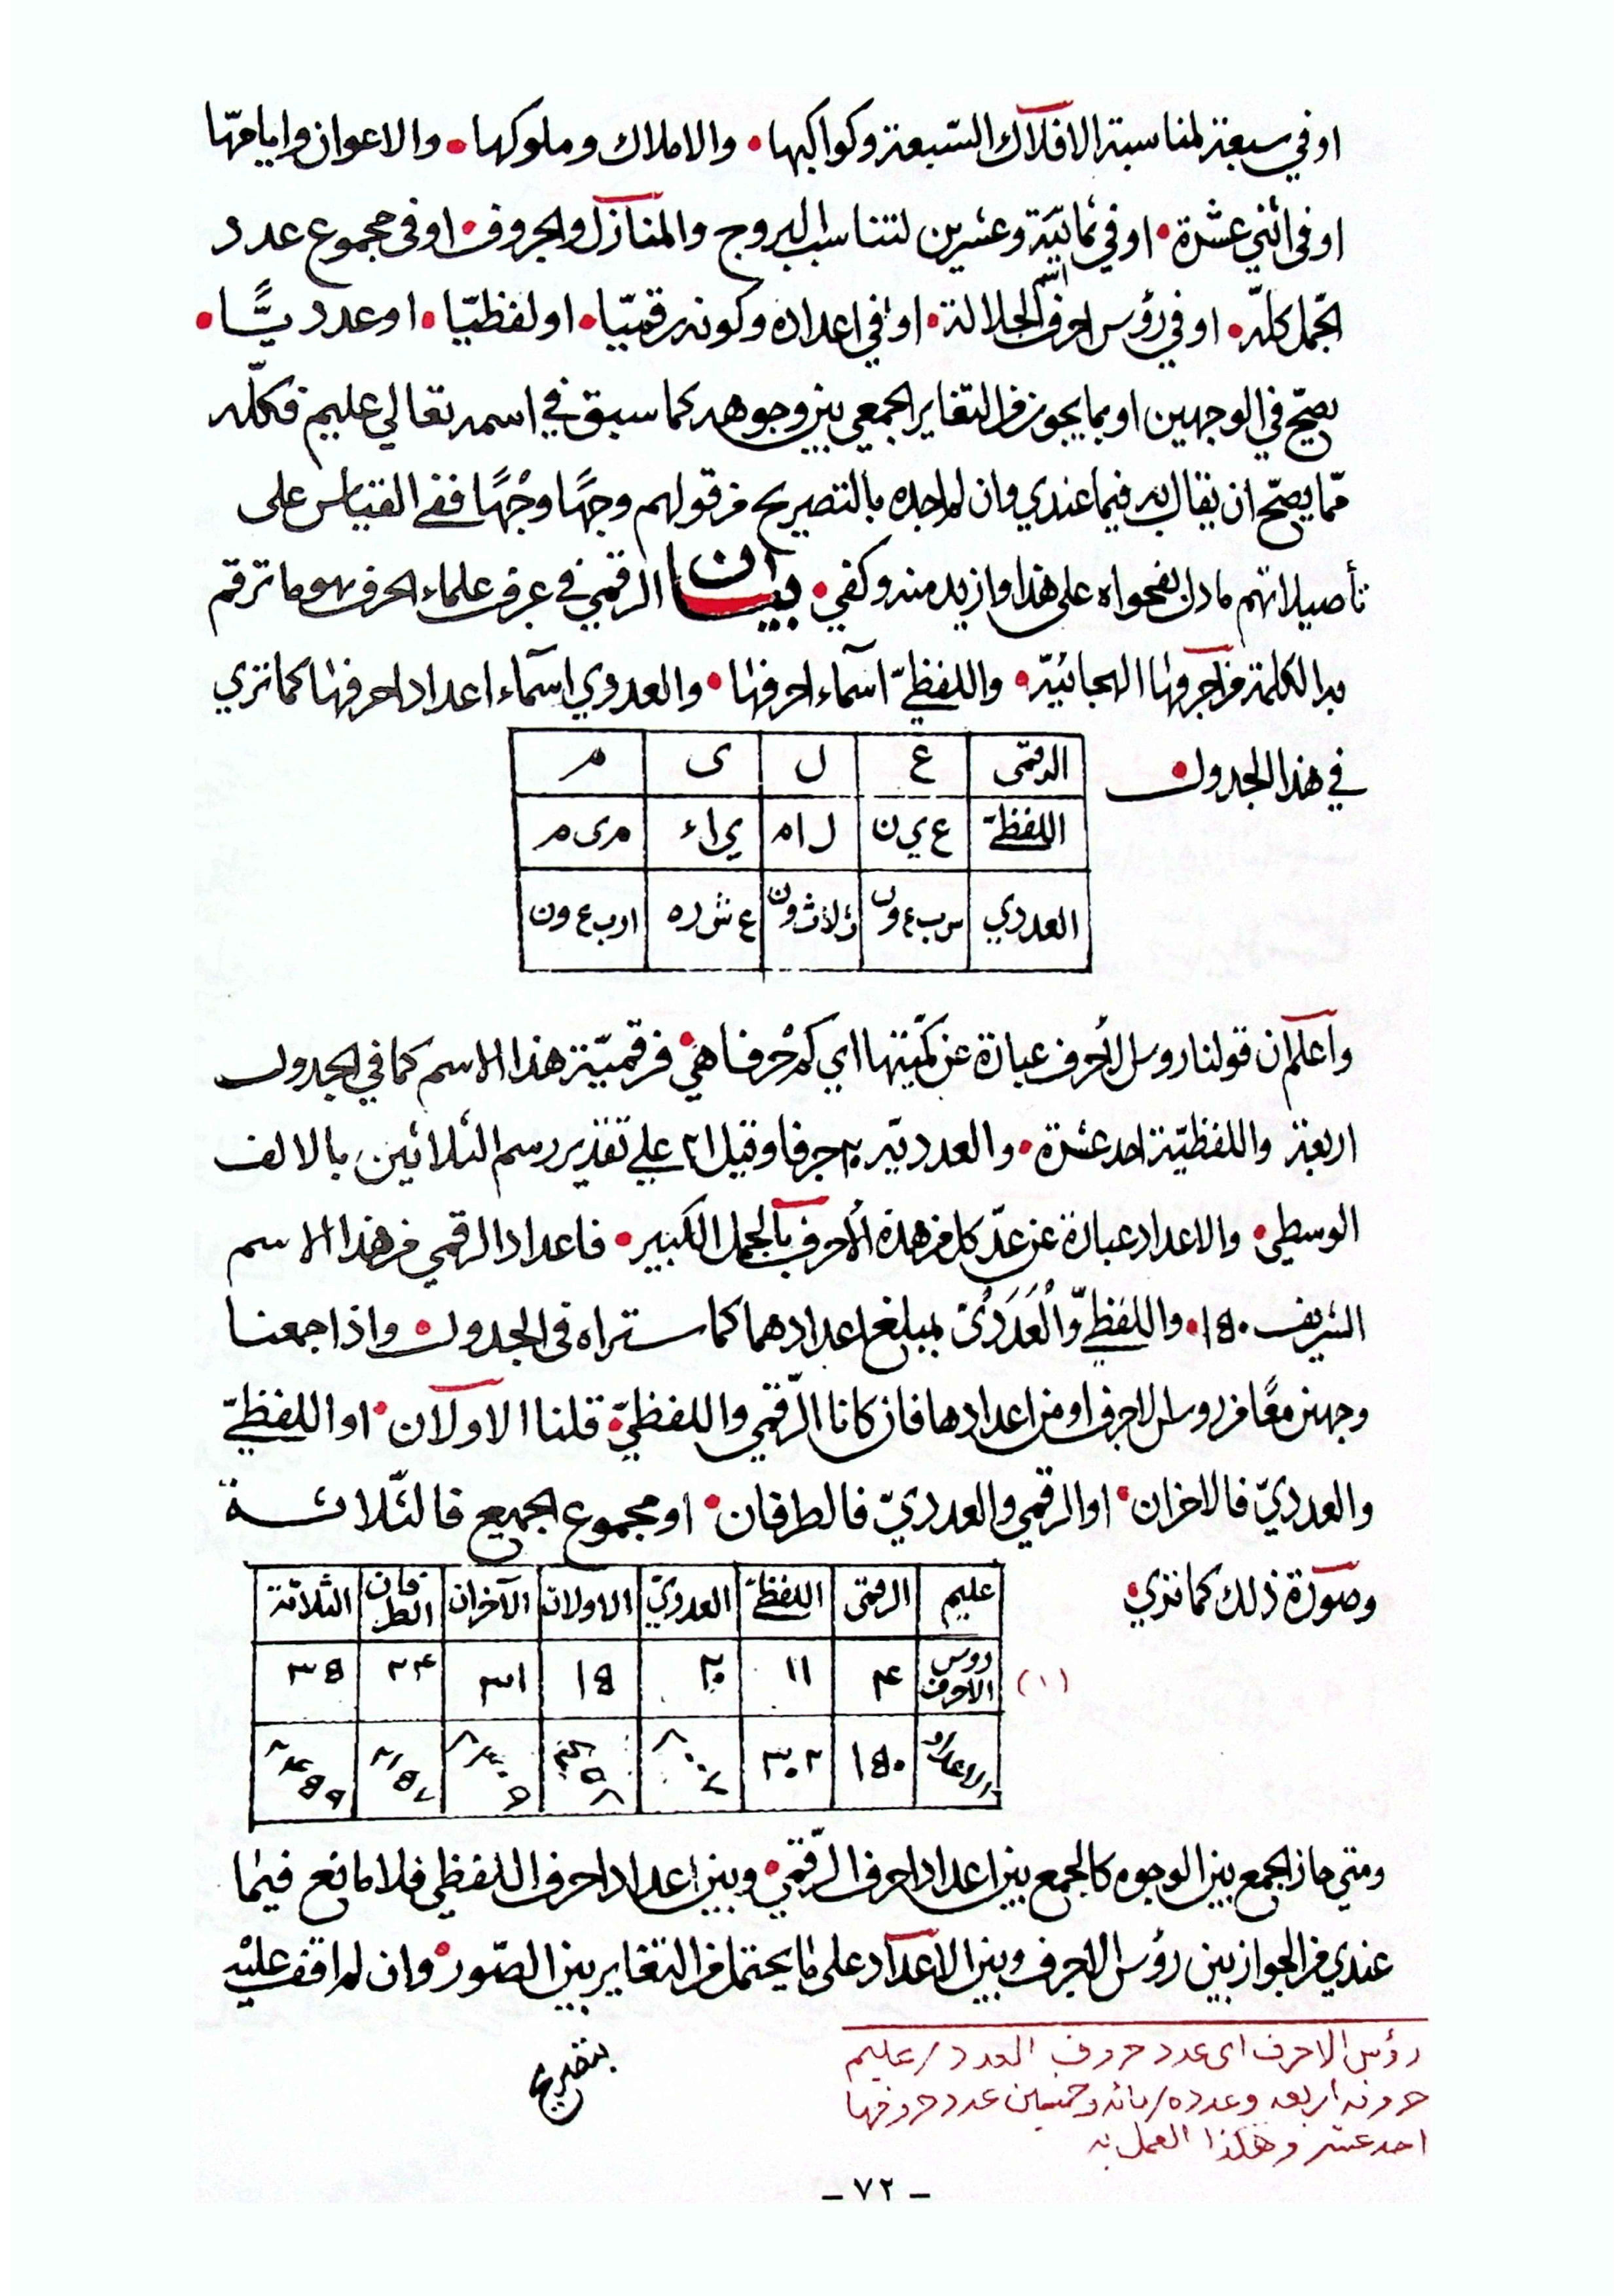 او في سبعة لمناسبة الافلاك السّبعة وكواكبها • والاملاك وملوكها • والاعوان وايامها
او في اثني عشرة • او في ثمانيّة وعشرين لتناسب البروج والمنازل والحروف • او فى مجموع عدد
الجمل كله • او في رؤس احرف اسم الجلالة • او في اعداده وكونه رقميّا • او لفظيّا • او عدديًّا •
يصحّ في الوجهين او بما يجوز من التغاير الجمعي بين وجوهه كما سبق في اسمه تعالي عليم فكلّه
ممّا يصحّ ان يقال به فيما عندي وان لم اجده بالتصريح من قولهم وجهًا وجْهًا ففي القياس على
تأصيلاتهم ما دل بفحواه على هذا وازيد منه وكفي • بيان الرقمي في عرف علماء الحرف هو ما ترقم
به الكلمة من احرفها الهجائيّة • واللفظيّ اسماء احرفها • والعددي اسماء اعداد احرفها كما تري
في هذا الجدول •
الرقمى ع ل ى م
اللفظيّ ع ي ن ل ا م ي ا ء م ى م
العددي س ب ع ون ث ل ا ث ون ع ش ر ه ا ر ب ع ون
واعلم ان قولنا روس الأحرف عبارة عن كمّيتها اي كم حرفا هي • فرقميّة هذا الاسم كما في الجدول
اربعة واللفظيّة احد عشرة • والعدديّة ٢٠ حرفا وقيل ٢١ علي تقدير رسم الثلاثين بالالف
الوسطي • والاعداد عبارة عن عدّ كل من هذه الأحرف بالجمل الكبير • فاعداد الرقمي من هذا الاسم
الشريف ١٥٠ • واللفظيّ والعَدَديّ بمبلغ اعدادهما كما ستراه فى الجدول • واذا جمعنا
وجهين معًا من روس الاحرف او من اعدادها فان كانا الرّقمي واللفظيّ • قلنا الاولان • او اللفظيّ
والعدديّ فالاخران • او الرقمي والعدديّ فالطرفان • او مجموع الجميع فالثّلاثة
وصورة ذلك كما تري •
عليم الرقمى اللفظيّ العدديّ الاولان الآخران الطرفان الثلاثة
روس الاحرف ۴ ١١ ٢٠ ١٥ ٣١ ٢۴ ٣٥
(١)
الاعداد ١٥٠ ٣٠٢
ومتي جاز الجمع بين الوجوه كالجمع بين اعداد احرف الرّقمي • وبين اعداد احرف اللفظي فلا مانع فيما
عندي من الجواز بين رؤس الاحرف وبين الاعداد على ما يحتمل من التغاير بين الصّور • وان لم اقف عليْه
بتصريح
رؤس الاحرف اى عدد حروف العدد / عليم
حروفه اربعه وعدده / مائه وخمسين عدد حروفها
احد عشر وهكذا العمل به
– ٧٢ –